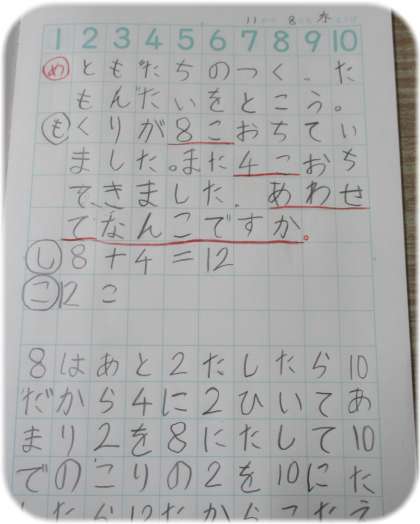 11 8 水
1 2 3 4 5 6 7 8 9 10
め ともだちのつく、た
もんだいをとこう。
も くりが8こおちてい
ました。また4こおち
てきました。あわせ
てなんこですか。
し 8+4=12
こ 12こ
8はあと2たしたら10
だから4に2ひいてあ
まり2を8にたして10
でのこりの2を10にた